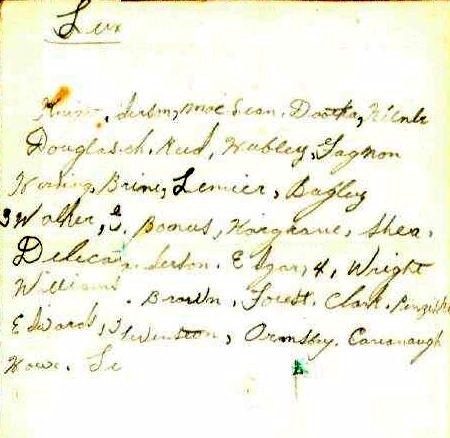 Lux
Gerson, MacLean, Dootka,
Douglas, ch. Reid, Hubley, Gagnon
Horning, Brine, Lemier, Bagley
3 Walker, Bonus, Hargrave, Shea,
Gerson. Edgar, 4, Wright
Williams. Brown, Forest. Clark.
Edwards, Ormsby. Cavanaugh
Howe. Le